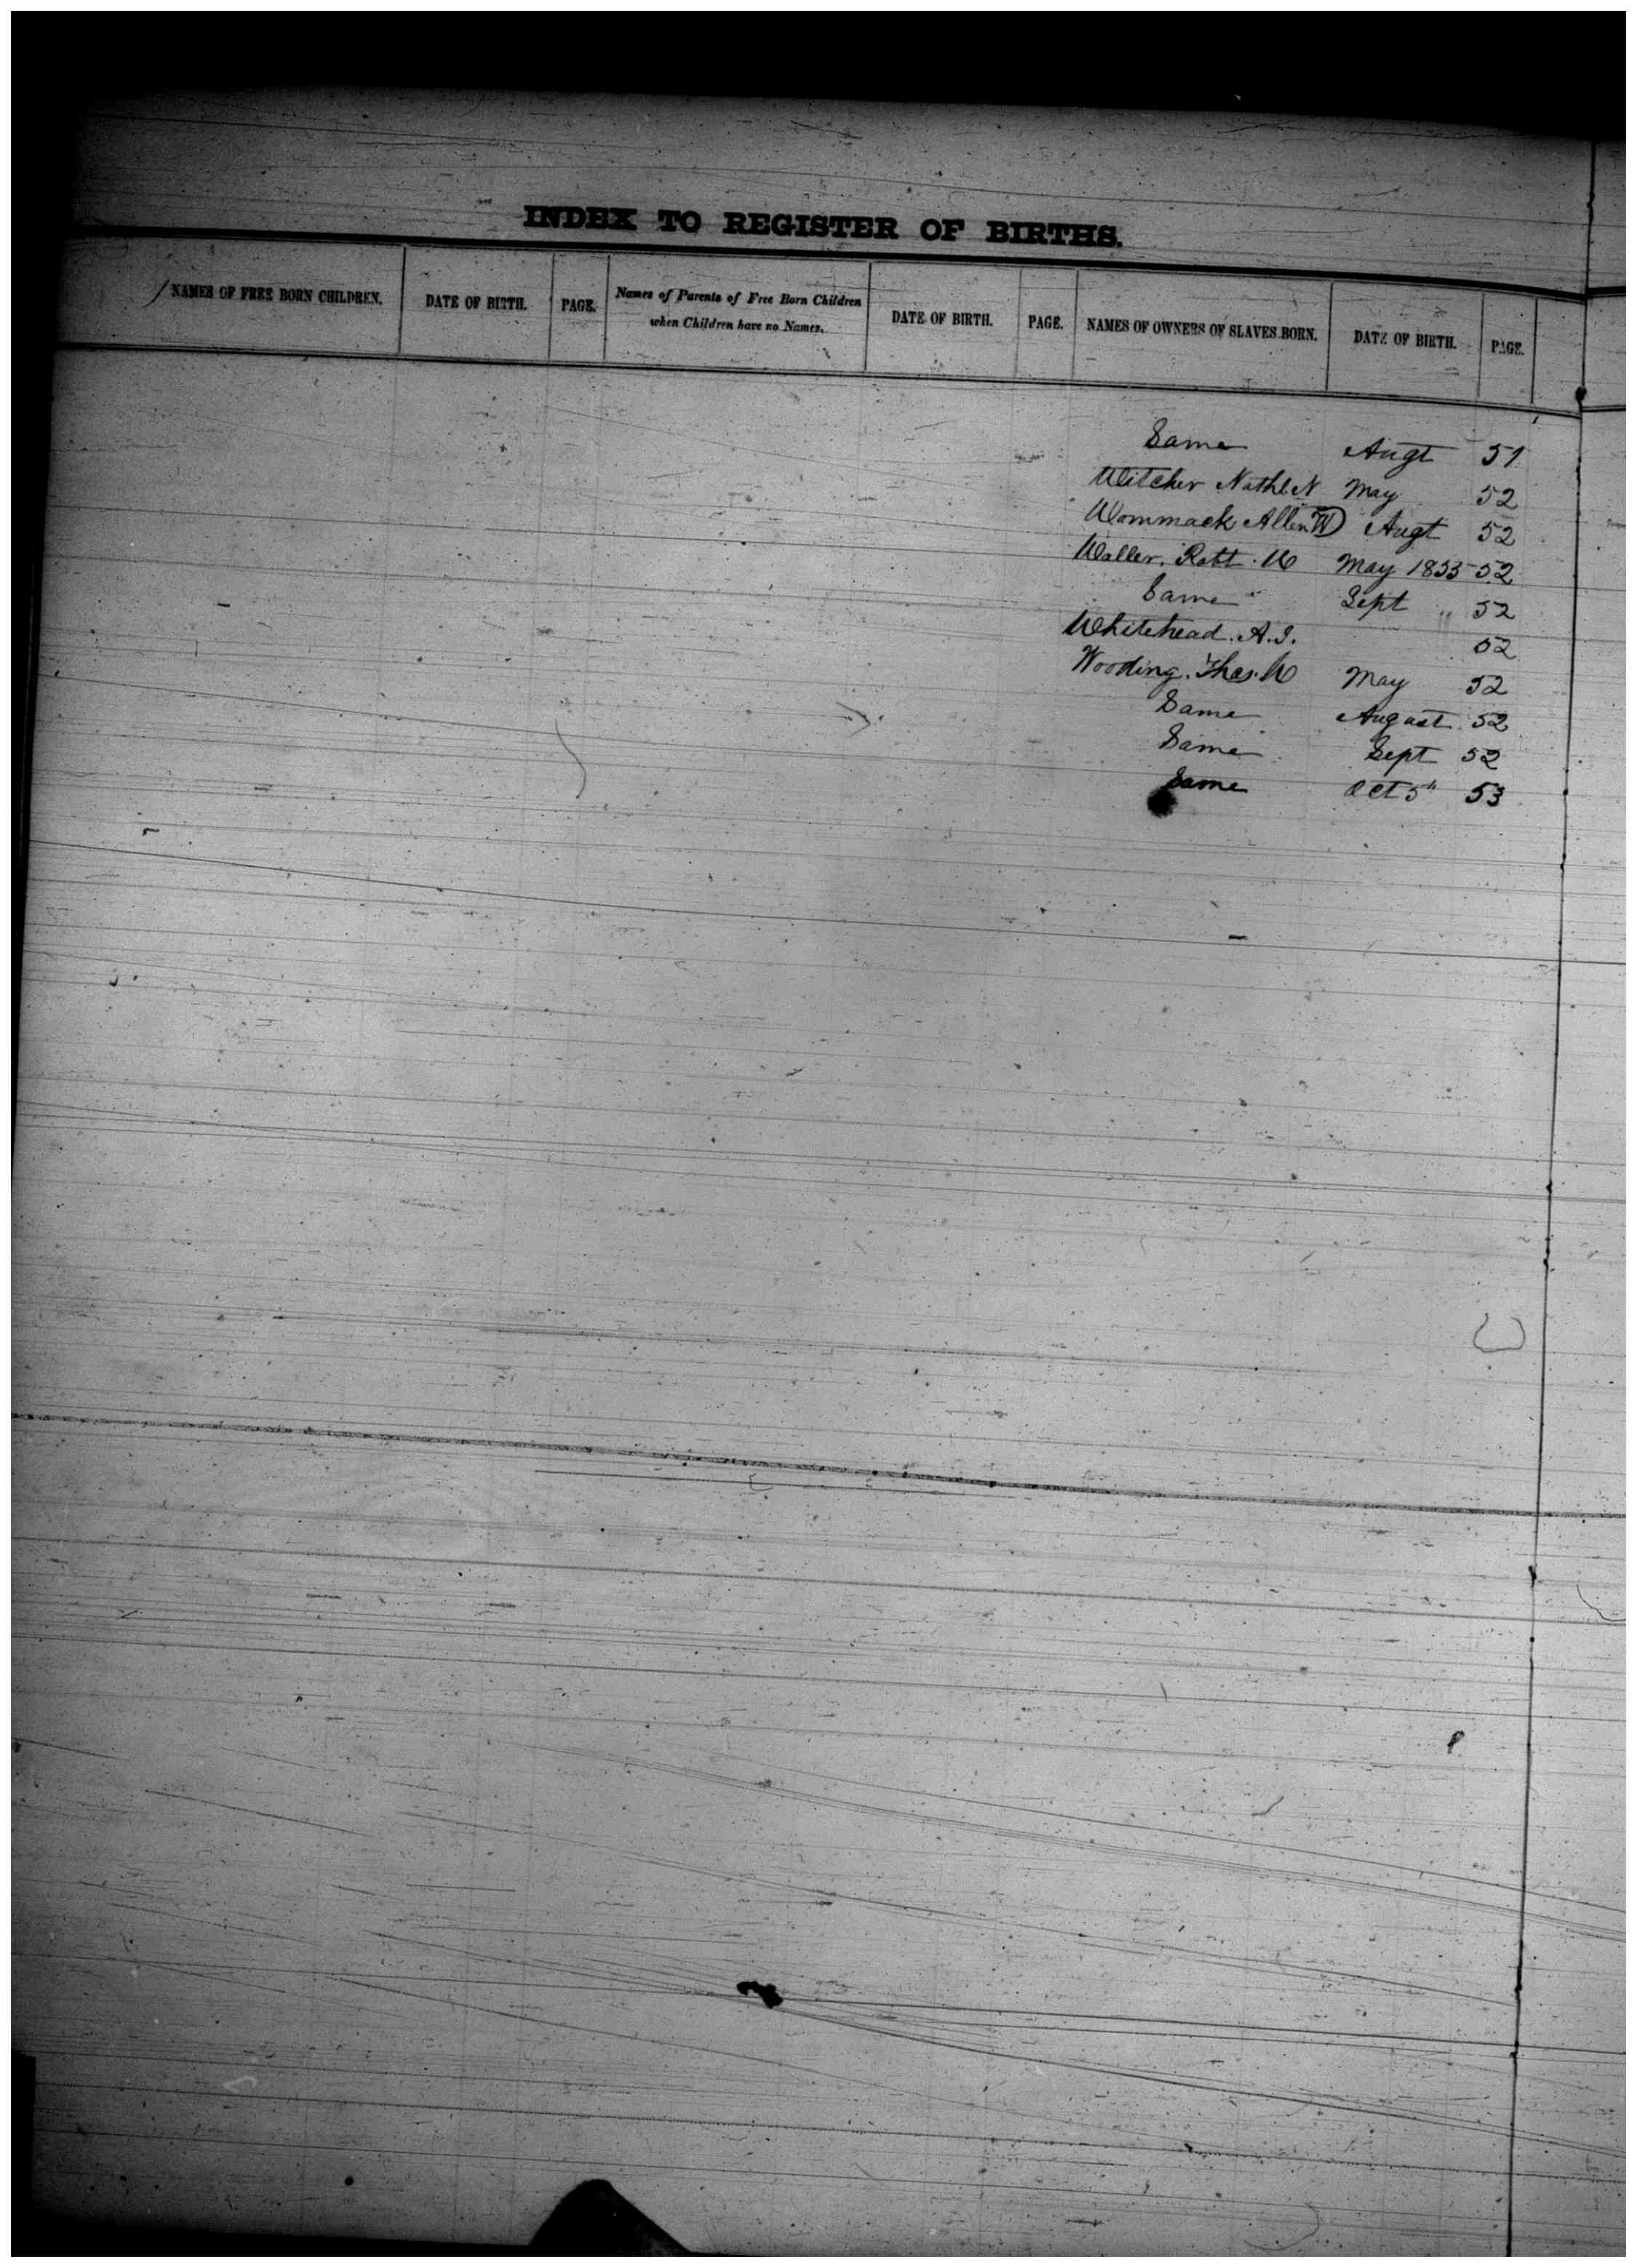 INDEX TO REGISTER OF BIRTHS.
NAMES OF FREE BORN CHILDREN. DATE OF BIRTH. PAGE. Names of Parents of Free Born Children when Children have no Names. DATE OF BIRTH. PAGE. NAMES OF OWNERS OF SLAVES BORN. DATE OF BIRTH. PAGE.
Same Augt 51
Witcher Nathl N May 52
Wommack Allen W Augt 52
Waller, Robt. W May 1853 52
Same Sept " 52
Whitehead. A. J. 52
Wooding. Thos. W May 52
Same August 52
Same Sept 52
Same Oct 5th 53